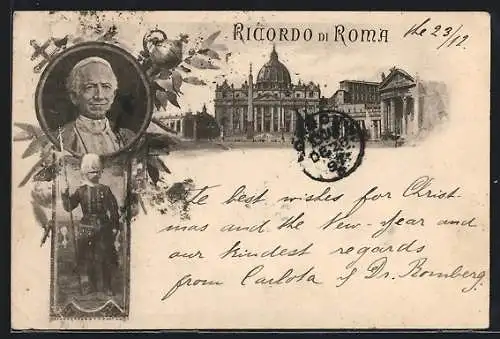 RICORDO DI ROMA
the 23/12.
The best wishes for Christ-
mas and the New-Year and
our kindest regards
from Carlota & Dr. Romberg.